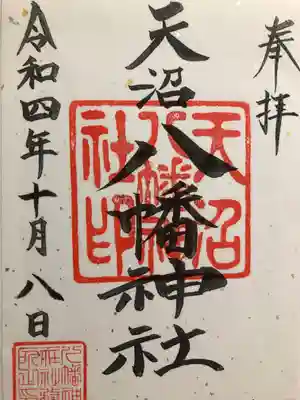 奉拝
天沼八幡神社
天沼八幡社印
令和四年十月八日